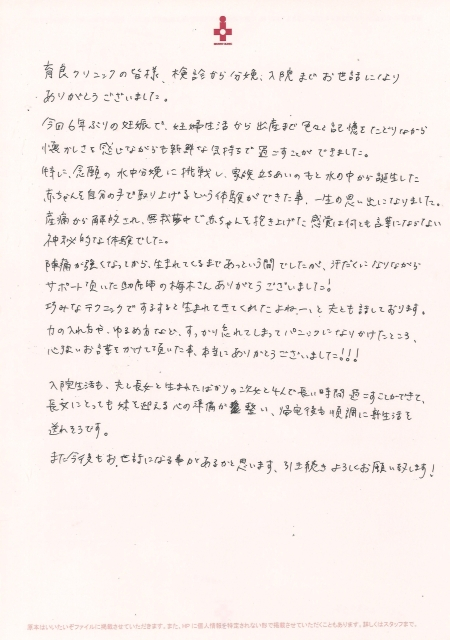 育良クリニックの皆様、検診から分娩、入院までお世話になり
ありがとうございました。
今回6年ぶりの妊娠で、妊婦生活から出産まで色々記憶をたどりながら
懐かしさを感じながらも新鮮な気持ちで過ごすことができました。
特に、念願の水中分娩に挑戦し、家族立ちあいのもと水の中から誕生した
赤ちゃんを自分の手で取り上げるという体験ができた事、一生の思い出になりました。
産痛から解放され、無我夢中で赤ちゃんを抱き上げた感覚は何とも言葉にならない
神秘的な体験でした。
陣痛が強くなってから、生まれてくるまであっという間でしたが、汗だくになりながら
サポート頂いた助産師の梅木さんありがとうございました!
巧みなテクニックでするすると生まれてきてくれたよねー、と夫とも話しております。
力の入れ方や、ゆるめ方など、すっかり忘れてしまってパニックになりかけたところ、
心強いお言葉をかけて頂いた事、本当にありがとうございました!!!
入院生活も、夫と長女と生まれたばかりの次女と4人で長い時間過ごすことができて、
長女にとっても妹を迎える心の準備が整い、帰宅後も順調に新生活を
送れそうです。
また今後もお世話になる事があるかと思います、引き続きよろしくお願い致します!
原本はいいたいぞファイルに掲載させていただきます。また、HPに個人情報を特定されない形で掲載させていただくこともあります。詳しくはスタッフまで。